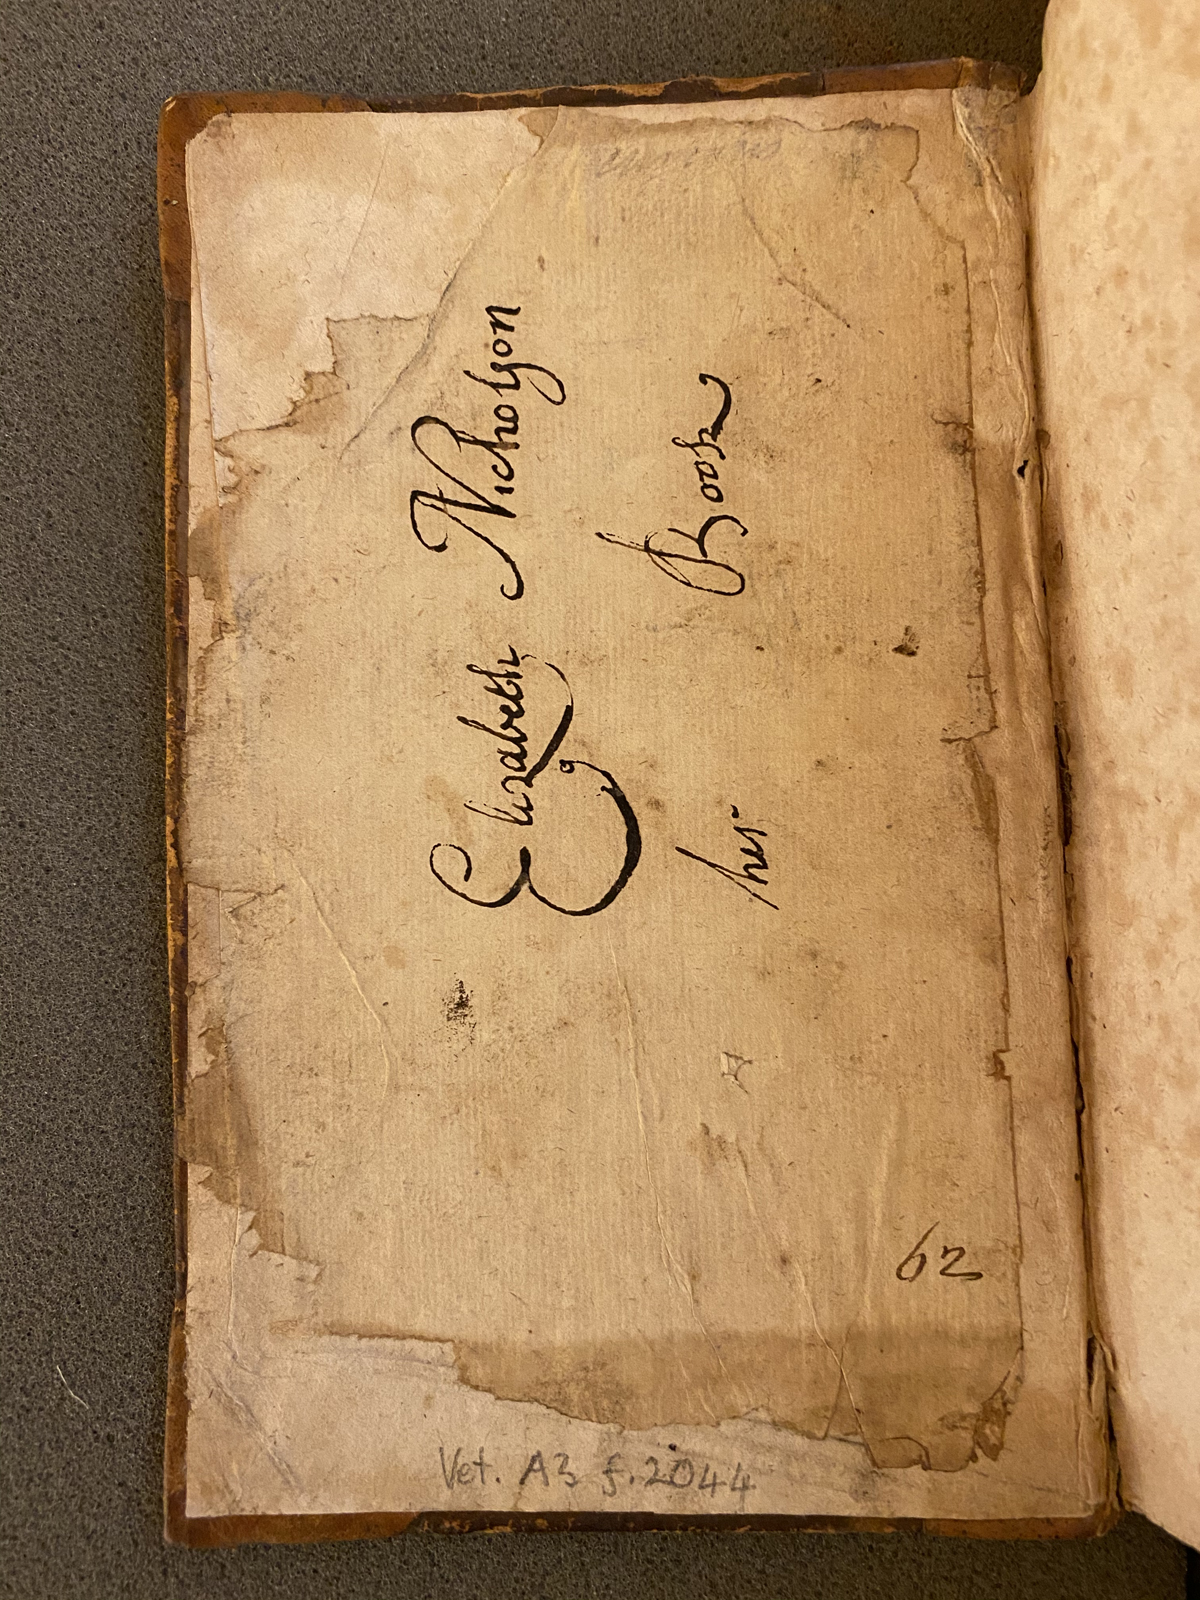 Elizabeth Nicholson
her Book
62
Vet. A3 f. 2044